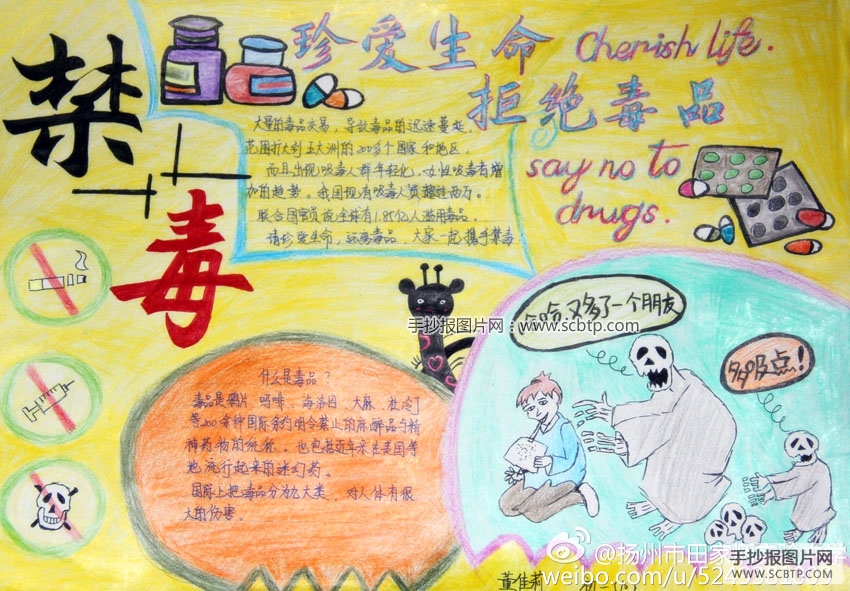 禁毒
珍爱生命 Cherish life.
拒绝毒品
say no to
drugs.
大量的毒品交易，导致毒品的迅速蔓延，
范围扩大到五大洲的200多个国家和地区，
而且出现吸毒人群年轻化、女性吸毒者增
加的趋势。我国现有吸毒人员超过百万。
联合国官员说全球有1.85亿人滥用毒品。
请珍爱生命，远离毒品，大家一起携手禁毒
手抄报图片网：www.scbtp.com
什么是毒品？
毒品是鸦片、吗啡、海洛因、大麻、杜冷丁
等200多种国际条约明令禁止的麻醉品与精
神药物的统称。也包括近年来在美国等
地流行起来的迷幻药。
国际上把毒品分为九大类，对人体有很
大的伤害。
哈哈又多了一个朋友
多吸点！
董佳莉
@扬州市田家
weibo.com/u/52
手抄报图片网
WWW.SCBTP.COM